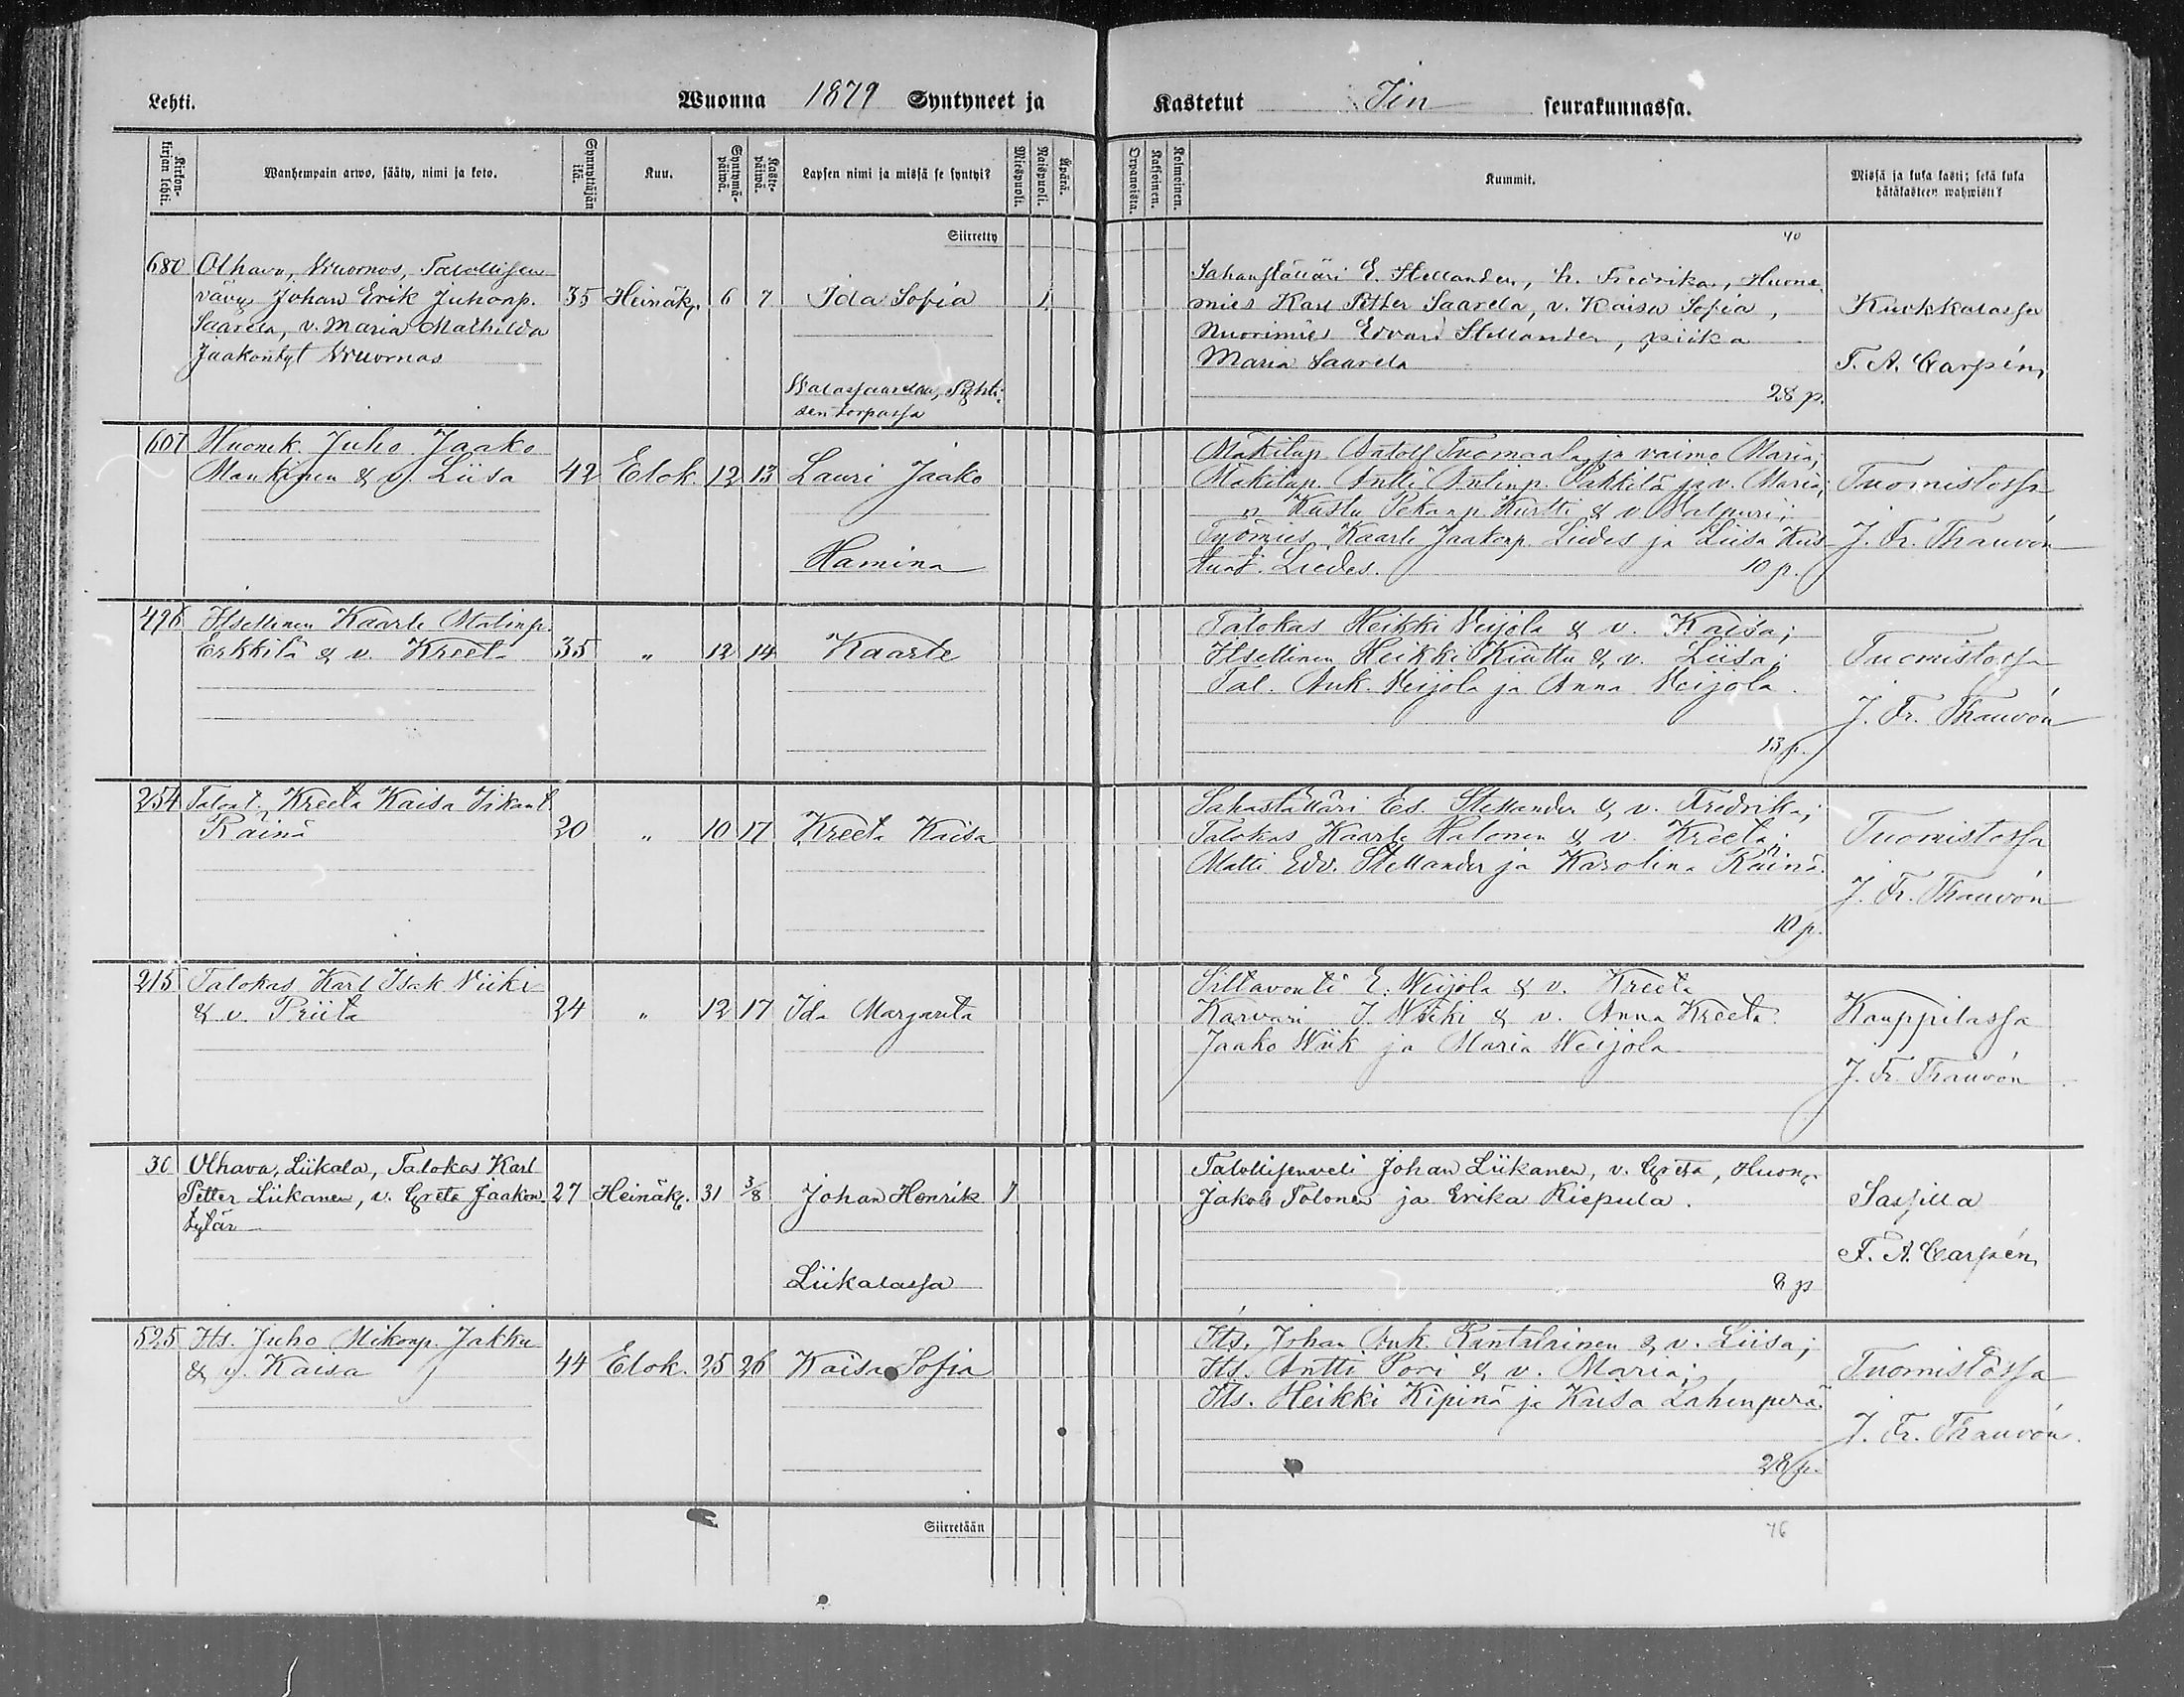 Lehti.
Wuonna 1879 Syntyneet ja
Kastetut Iin seurakunnassa.
Kirkonkirjan lehti.
Wanhempain arwo, sääty, nimi ja koto.
Synnyttäjän ikä.
Kuu.
Syntymäpäiwä.
Kastepäiwä.
Lapsen nimi ja missä se syntyi?
Miespuoli.
Naispuoli.
Äpärä.
Orpanoista.
Kaksoinen.
Kolmoinen.
Kummit.
Missä ja kuka kasti; sekä kuka
hätäkasteen wahwisti?
Siirretty
40
680 Olhava, Wuornos, Talollisen
vävy Johan Erik Juhonp. 35 Heinäk. 6 7 Ida Sofia 1
Saarela, v. Maria Mathilda
Jaakontyt Wuornos
sen torpassa
Sahanställäri E. Stellander, h. Fredrika, Huone
mies Karl Petter Saarela, v. Kaisa Sofia,
Nuorimies Edvard Stellander, piika
Maria Saarela
28 p.
Kuckkalassa
F. A. Carpén
607 Huonek. Juho Jaako
Mankinen & v. Liisa 42 Elok. 12 13 Lauri Jaako
Hamina
Mäkitup. Antolf Tuomaala ja vaimo Maria;
Mäkitup. Antti Antinp. Pakkila ja v. Maria;
" Kustu Pekanp. Kurtti & v. Valpuri;
Työmies Kaarle Jaakonp. Liedes ja Liisa Kus
taat. Liedes. 10 p.
Tuomistossa
J. Fr. Thauvón
496 Itsellinen Kaarle Matinp.
Erkkilä & v. Kreeta 35 " 12 14 Kaarle
Talokas Heikki Veijola & v. Kaisa;
Itsellinen Heikki Kiuttu & v. Liisa;
Tal. Auk. Veijola ja Anna Veijola.
13 p.
Tuomistossa
J. Fr. Thauvón
254 Taloat. Kreeta Kaisa Iikant.
Räinä 20 " 10 17 Kreeta Kaisa
Sahaställäri Ed. Stellander & v. Fredrika;
Talokas Kaarle Halonen & v. Kreeta;
Matti Edv. Stellander ja Karolina Räinä.
10 p.
Tuomistossa
J. Fr. Thauvón
215 Talokas Karl Isak Wiiki
& v. Priita 24 " 12 17 Ida Margareta
Siltavouti E. Weijola & v. Kreeta
Karvari J. Wiiki & v. Anna Kreeta.
Jaako Wiik ja Maria Weijola
Kauppilassa
J. Fr. Thauvón
30 Olhava, Liikala, Talokas Karl
Petter Liikanen, v. Greta Jaakon 27 Heinäk. 31 3/8 Johan Henrik 1
tytär
Liikalassa
Talollisenveli Johan Liikanen, v. Greta, Huon.
Jakob Tolonen ja Erika Kiepula.
8 p
Sassilla
F. A. Carpén
525 Its. Juho Mikonp. Jakku
& v. Kaisa 44 Elok. 25 26 Kaisa Sofia
Its. Johan Auk. Rantalainen & v. Liisa;
Its. Antti Pori & v. Maria;
Its. Heikki Kipinä ja Kaisa Lahenperä.
28 p.
Tuomistossa
J. Fr. Thauvón.
Siirretään
76